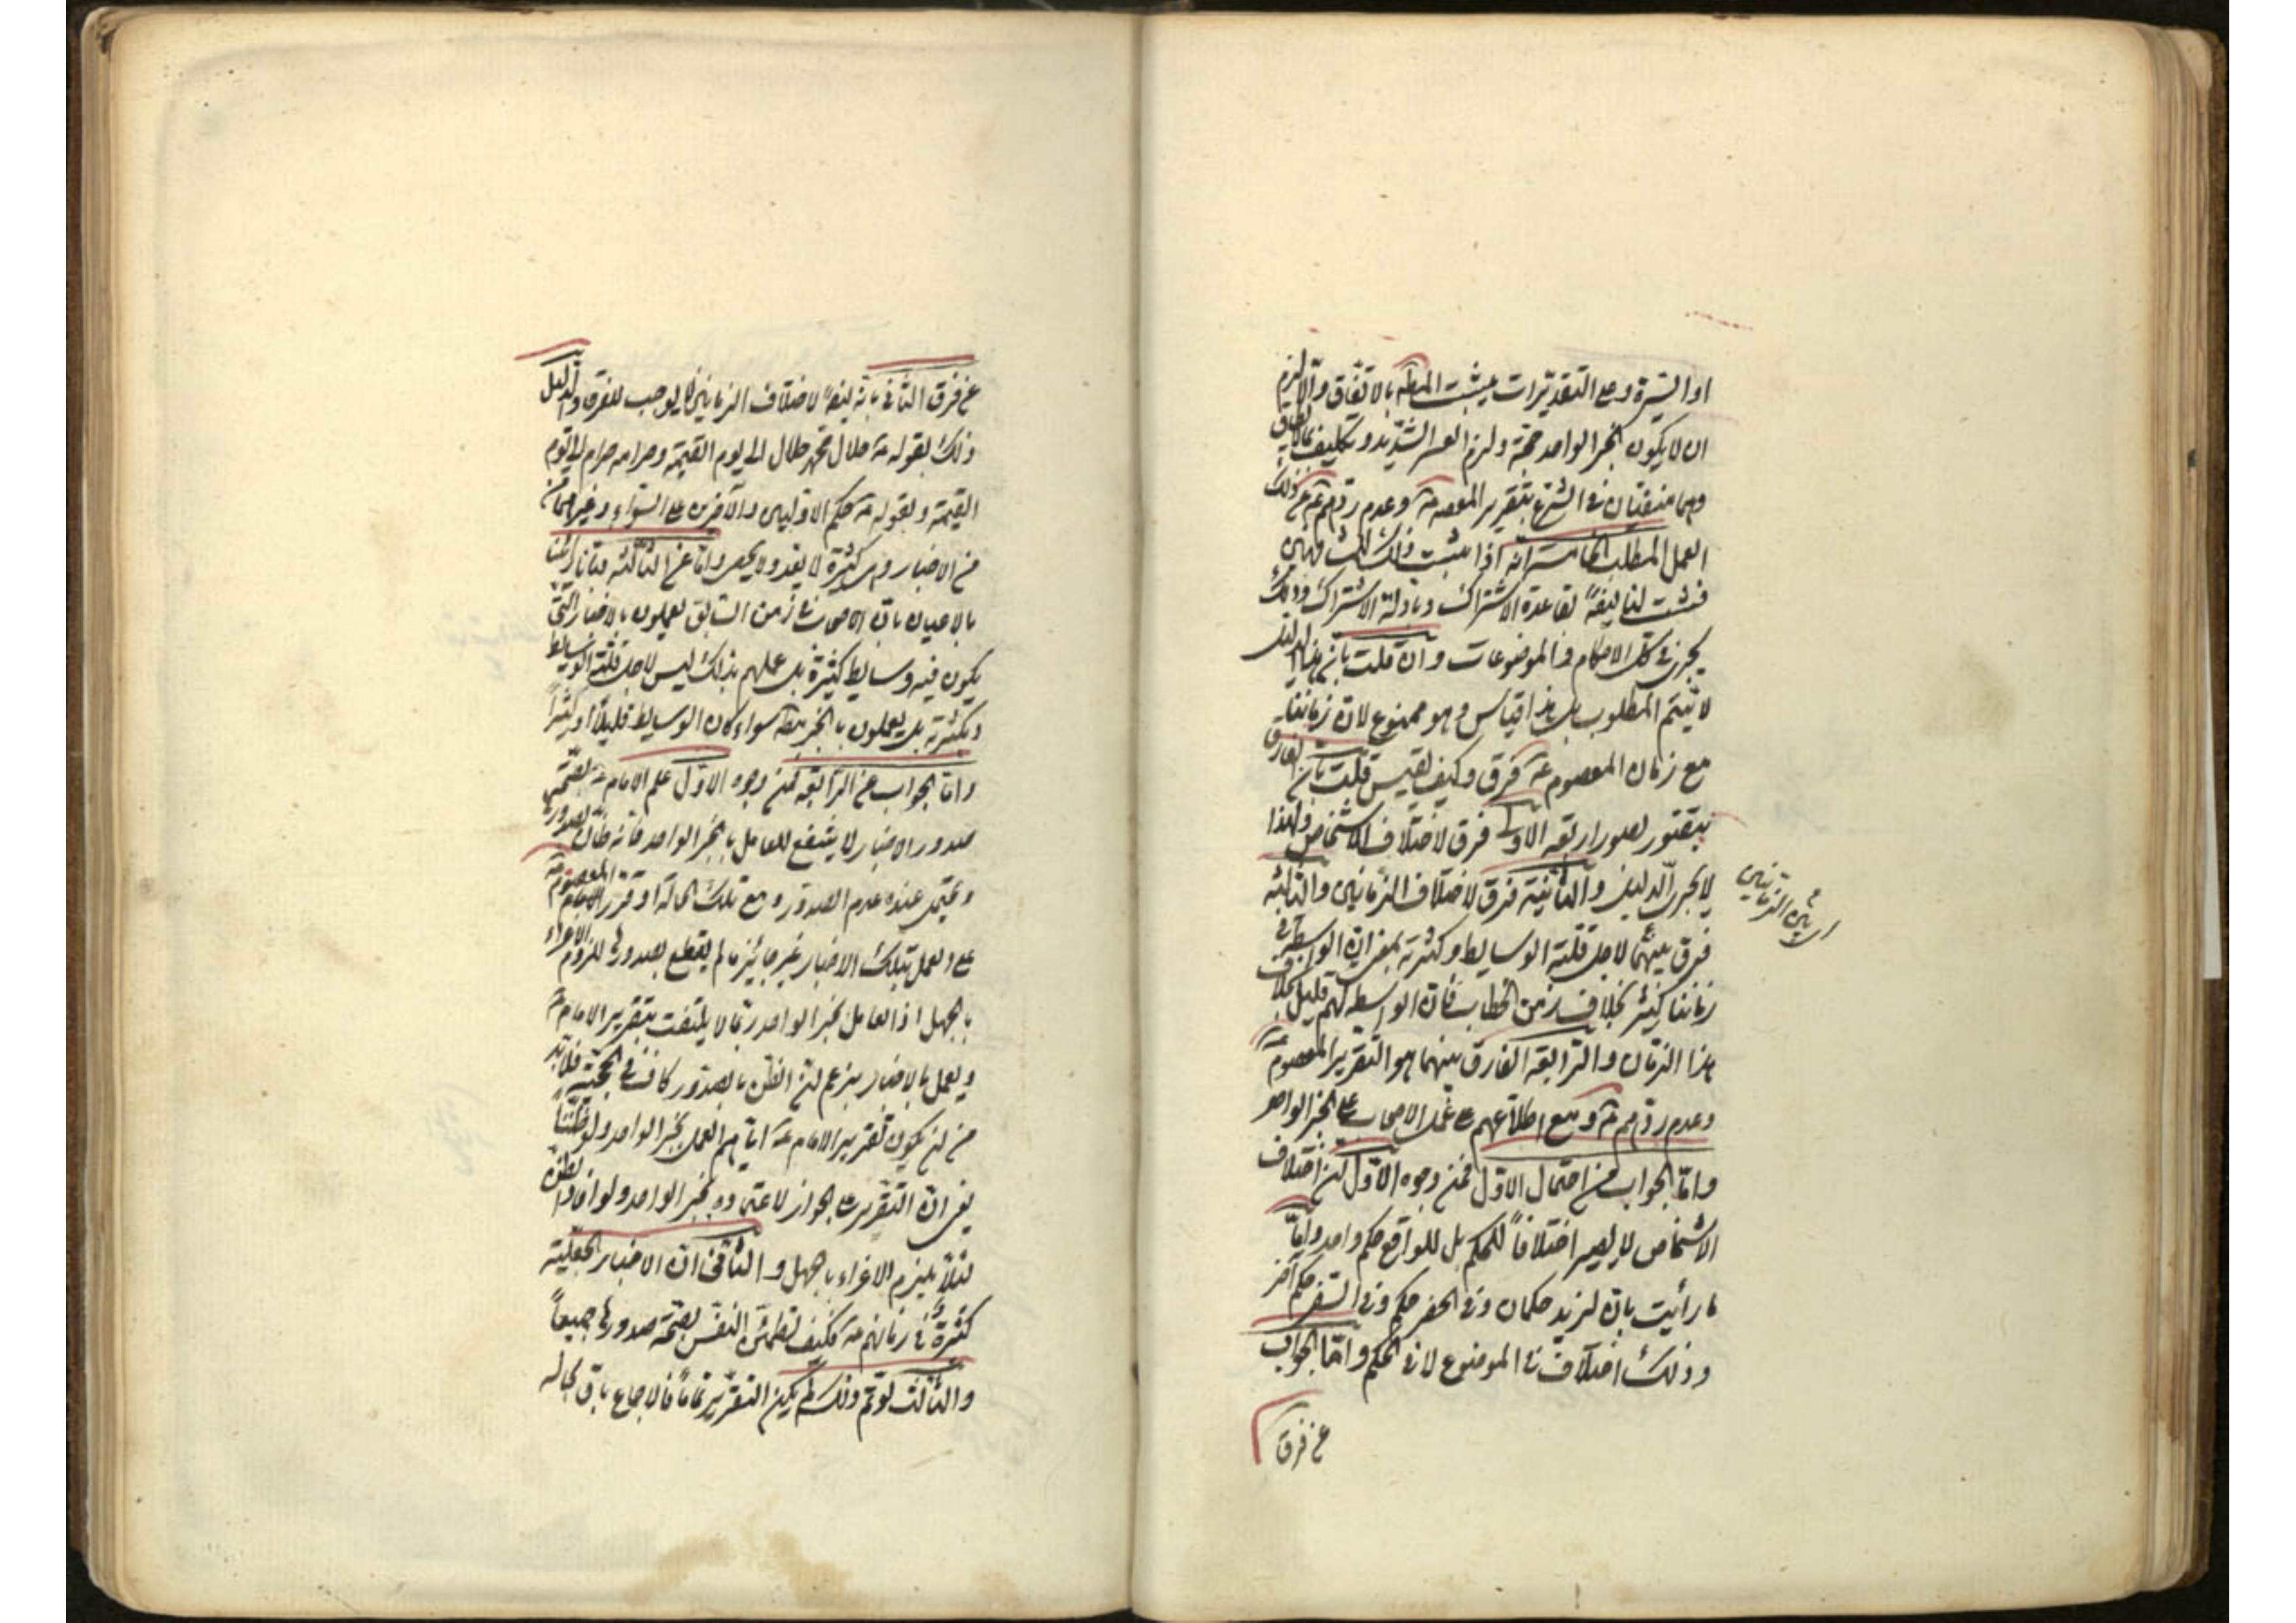 او السّيرة و على التقديرات يثبت المط بالاتّفاق و الّا لزم
ان لا يكون الخبر الواحد حجّة و لزم العسر الشّديد و تكليف بما لا يطاق
و هما منفيّان في الشرع بتقرير المعصوم ع و عدم ردّهم ع عن ذلك
العمل المطلب الخامسة انّه اذا يثبت ذلك
فيثبت لنا ايضاً لقاعدة الاشتراك و بادلّة الاشتراك و ذلك
يجرى في كلّ الاحكام و الموضوعات و ان قلت بانّ هذا الدليل
لا يتمّ المطلوب بل هذا قياس و هو ممنوع لانّ زماننا
مع زمان المعصوم ع فرق و كيف يقيس قلت بانّ الفارق
يتصّور بصور اربعة الاولى فرق لاختلاف الاشخاص و لهذا
لا يجرى الدليل و الثّانية فرق لاختلاف الزّمانين و الثالثة
فرق بينهما لاجل قلّة الوسايط و كثرته بمعنى انّ الواسطة في
زماننا كثير بخلاف زمن الخطاب فانّ الواسطة لهم قليل بخلاف
هذا الزمان و الرّابعة الفارق بينهما هو التقرير المعصوم ع
و عدم ردّهم ع و مع اطلاعهم على عمل الاصحاب على الخبر الواحد
و امّا الجواب من احتمال الاوّل فمن وجوه الاوّل ان اختلاف
الاشخاص لا يصير اختلافاً للحكم بل للواقع حكم واحد و امّا
ما رأيت بانّ لزيد حكمان و في الحضر حكم و في السّفر حكم آخر
و ذلك اختلاف في الموضوع لا في الحكم و امّا الجواب
عن فرق
الزمانين
عن فرق الثّاني بانّه ايضاً لاختلاف الزمانين لا يوجب للفرق و الدليل
ذلك بقوله ع حلال محمّد حلال الى يوم القيمة و حرامه حرام الى يوم
القيمة و بقوله ع حكم الاوّلين و الآخرين على السّواء و غيرهما
من الاخبار و هي كثيرة لا يعدّ و لا يحصى و امّا عن الثالثة فبانّا رأينا
بالاعيان بانّ الاصحاب في زمن السّابق يعملون بالاخبار الّتي
يكون فيه وسايط كثيرة بل عملهم بذلك ليس لاجل قلّة الوسايط
و كثرته بل يعملون بالخبر مط سواء كان الوسايط قليلاً او كثيراً
و امّا الجواب عن الرّابعة فمن وجوه الاوّل علم الامام ع بصحّة
صدور الاخبار لا ينتفع للعامل بالخبر الواحد فانّه ظانّ بصدوره
و يحتمل عنده عدم الصدور و مع تلك الحالة لو قرّر الامام المعصوم ع
على العمل بتلك الاخبار غير جائز ما لم يقطع بصدورها للزوم الاغراء
بالجهل اذ العامل بخبر الواحد ربّما لا يلتفت بتقرير الامام ع
و يعمل بالاخبار بزعم انّ الظنّ بالصدور كاف في الحجّية فلابدّ
من ان يكون تقرير الامام ع ايّاهم العمل بخبر الواحد و لو ظنّاً
يعنى انّ التقرير على الجواز لاعتماده بخبر الواحد و لو افاد الظنّ
لئلّا يلزم الاغراء بالجهل و الثّاني انّ الاخبار الجعليّة
كثيرة في زمانهم ع فكيف تطمئنّ النفس بصحّة صدورها جميعاً
و الثالث لو تمّ ذلك لم يكن التقرير تماماً فالاجماع باق بحاله